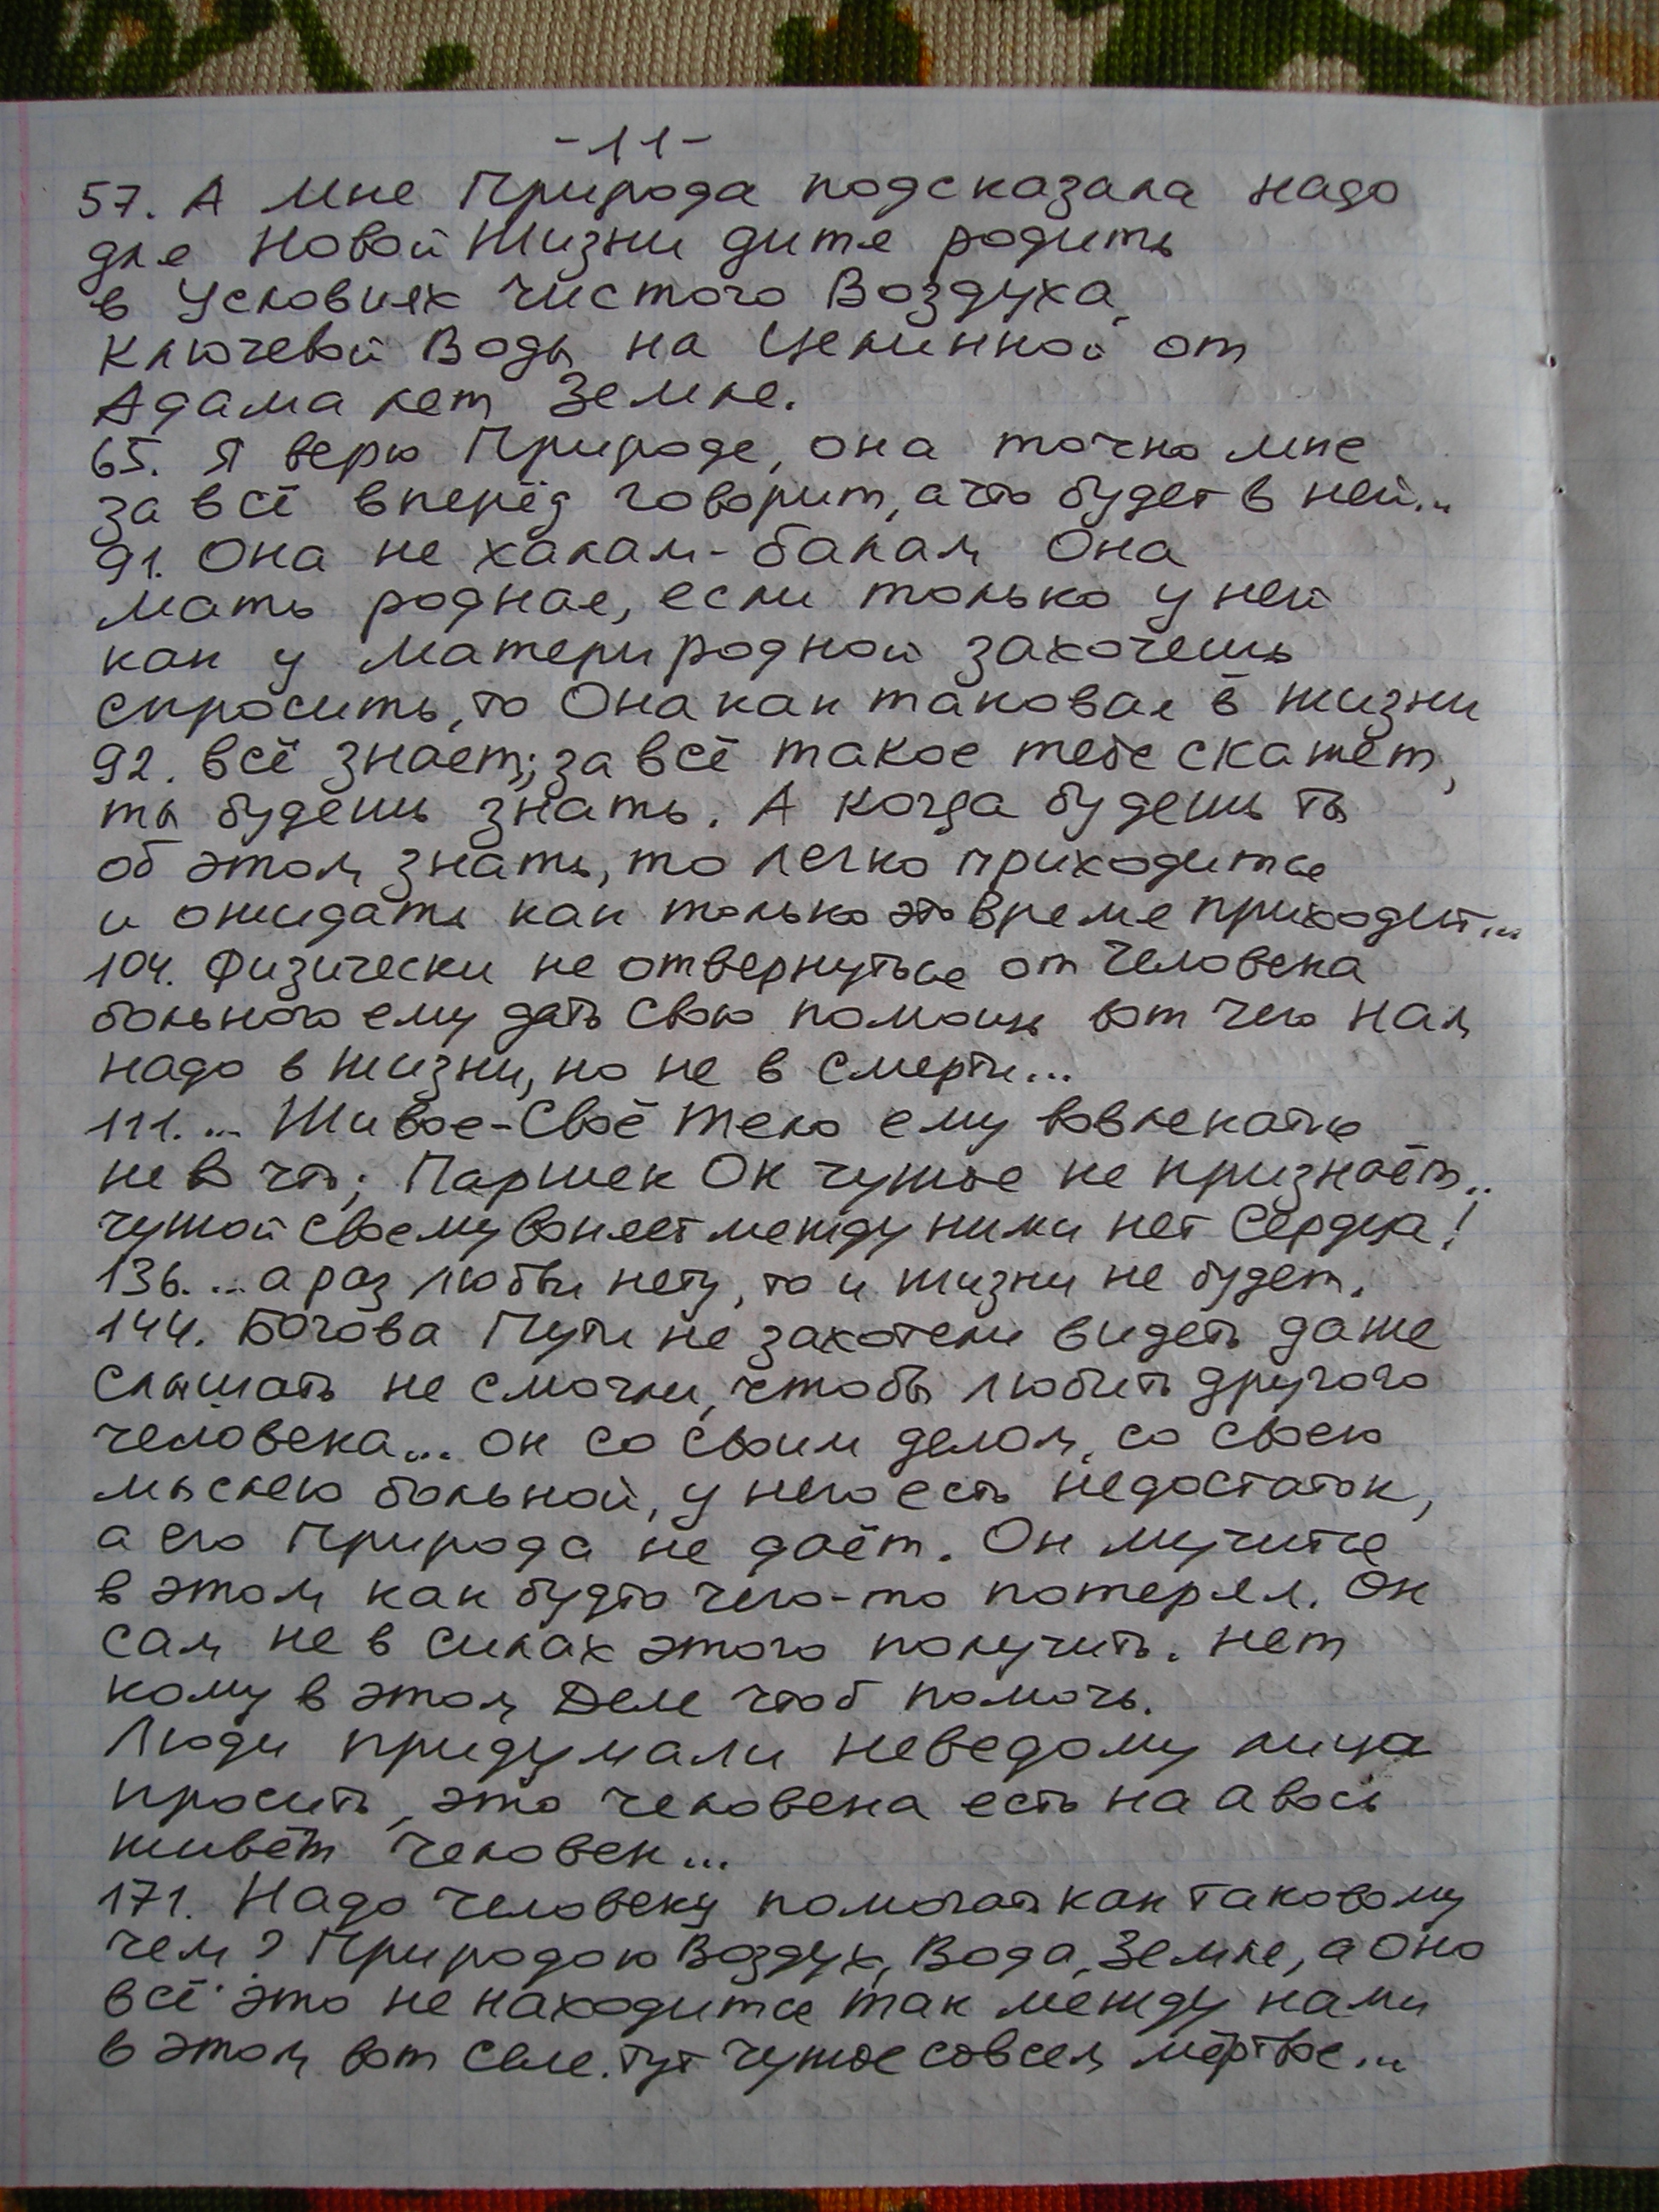 -11-
57. А мне Природа подсказала надо
для Новой Жизни дитя родить
в Условиях чистого Воздуха,
Ключевой Воды на Целинной от
Адама лет Земле.
65. Я верю Природе, она точно мне
за всё вперёд говорит, а что будет в ней...
91. Она не халам-балам Она
мать родная, если только у ней
как у матери родной захочешь
спросить, то Она как таковая в жизни
92. всё знает; за всё такое тебе скажет,
ты будешь знать. А когда будешь ты
об этом знать, то легко приходится
и ожидать как только это время приходит...
104. Физически не отвернуться от Человека
больного ему дать свою помощь вот чего нам
надо в жизни, но не в смерти...
111. ... Живое-Своё тело ему вовлекать
не в что; Паршек Он чужое не признаёт..
чужой своему воняет между ними нет Сердца!
136. ... а раз любви нету, то и жизни не будет.
144. Богова Пути не захотели видеть даже
слышать не смогли, чтобы любить другого
человека... он со своим делом, со своею
мыслею больной, у него есть недостаток,
а его Природа не даёт. Он мучится
в этом как будто чего-то потерял. Он
сам не в силах этого получить. нет
кому в этом Деле чтоб помочь.
Люди придумали неведому лица
просить, это человека есть на авось
живёт человек...
171. Надо человеку помогать как таковому
чем? Природою Воздух, Вода, Земля, а оно
всё это не находится так между нами
в этом вот селе. тут чужое совсем мёртвое...